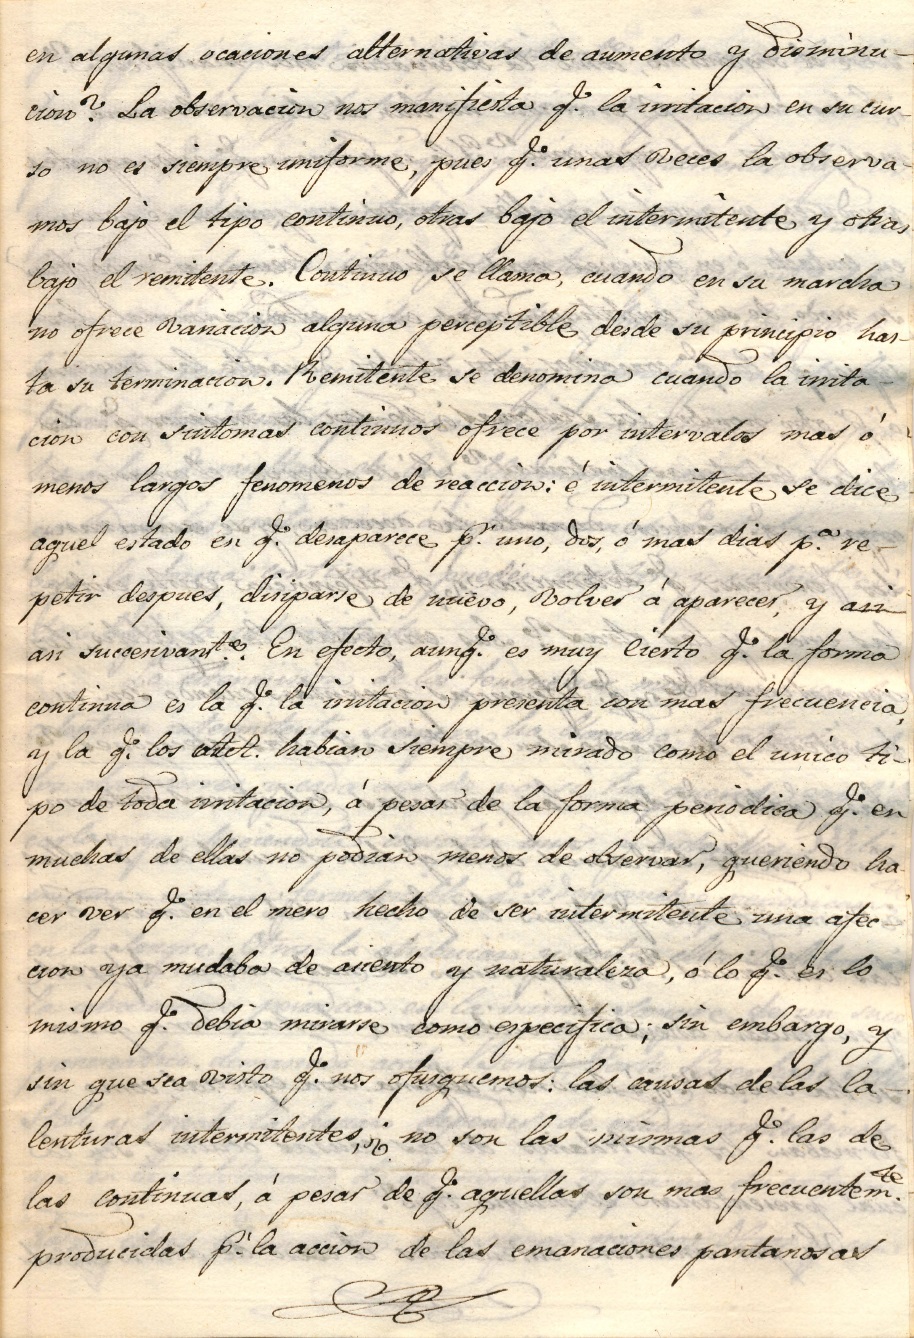 en algunas ocaciones alternativas de aumento y disminu-
cion? La observacion nos manifiesta q.e la irritacion en su cur-
so no es siempre uniforme, pues q.e unas veces la observa-
mos bajo el tipo continuo, otras bajo el intermitente y otras
bajo el remitente. Continuo se llama, cuando en su marcha
no ofrece variacion alguna perceptible desde su principio has-
ta su terminacion. Remitente se denomina cuando la irrita-
cion con sintomas continuos ofrece por intervalos mas ó
menos largos fenomenos de reaccion: é intermitente se dice
aquel estado en q.e desaparece p.r uno, dos, ó mas dias p.a re-
petir despues, disiparse de nuevo, volver á aparecer, y asi
asi succesivam.te. En efecto, aunq.e es muy cierto q.e la forma
continua es la q.e la irritacion presenta con mas frecuencia,
y la q.e los habian siempre mirado como el unico ti-
po de toda irritacion, á pesar de la forma periodica q.e en
muchas de ellas no podian menos de observar, queriendo ha-
cer ver q.e en el mero hecho de ser intermitente una afec-
cion ya mudaba de aciento y naturaleza, ó lo q.e es lo
mismo q.e debia mirarse como especifica; sin embargo, y
sin que sea visto q.e nos ofusquemos: las causas de las ca-
lenturas intermitentes, no son las mismas q.e las de
las continuas, á pesar de q.e aquellas son mas frecuentem.te
producidas p.r la accion de las emanaciones pantanosas